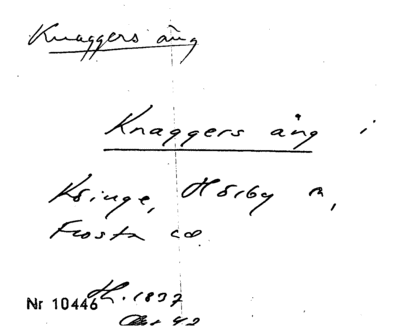 Knaggers äng
Knaggers äng i
Kringe, Hörby sn,
Frosta
Nr 10446 Th. 1837
Akt 42